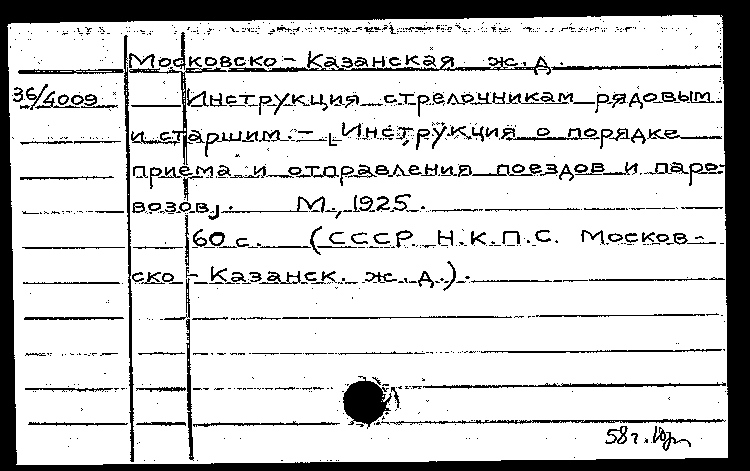 Московско-Казанская ж.д.
36/4009 Инструкция стрелочникам рядовым
и старшим.- [Инструкция о порядке
приема и отправления поездов и паро-
возов]. М., 1925.
60 с. (СССР. Н.К.П.С. Москов-
ско-Казанск. ж.д.).
58 г.